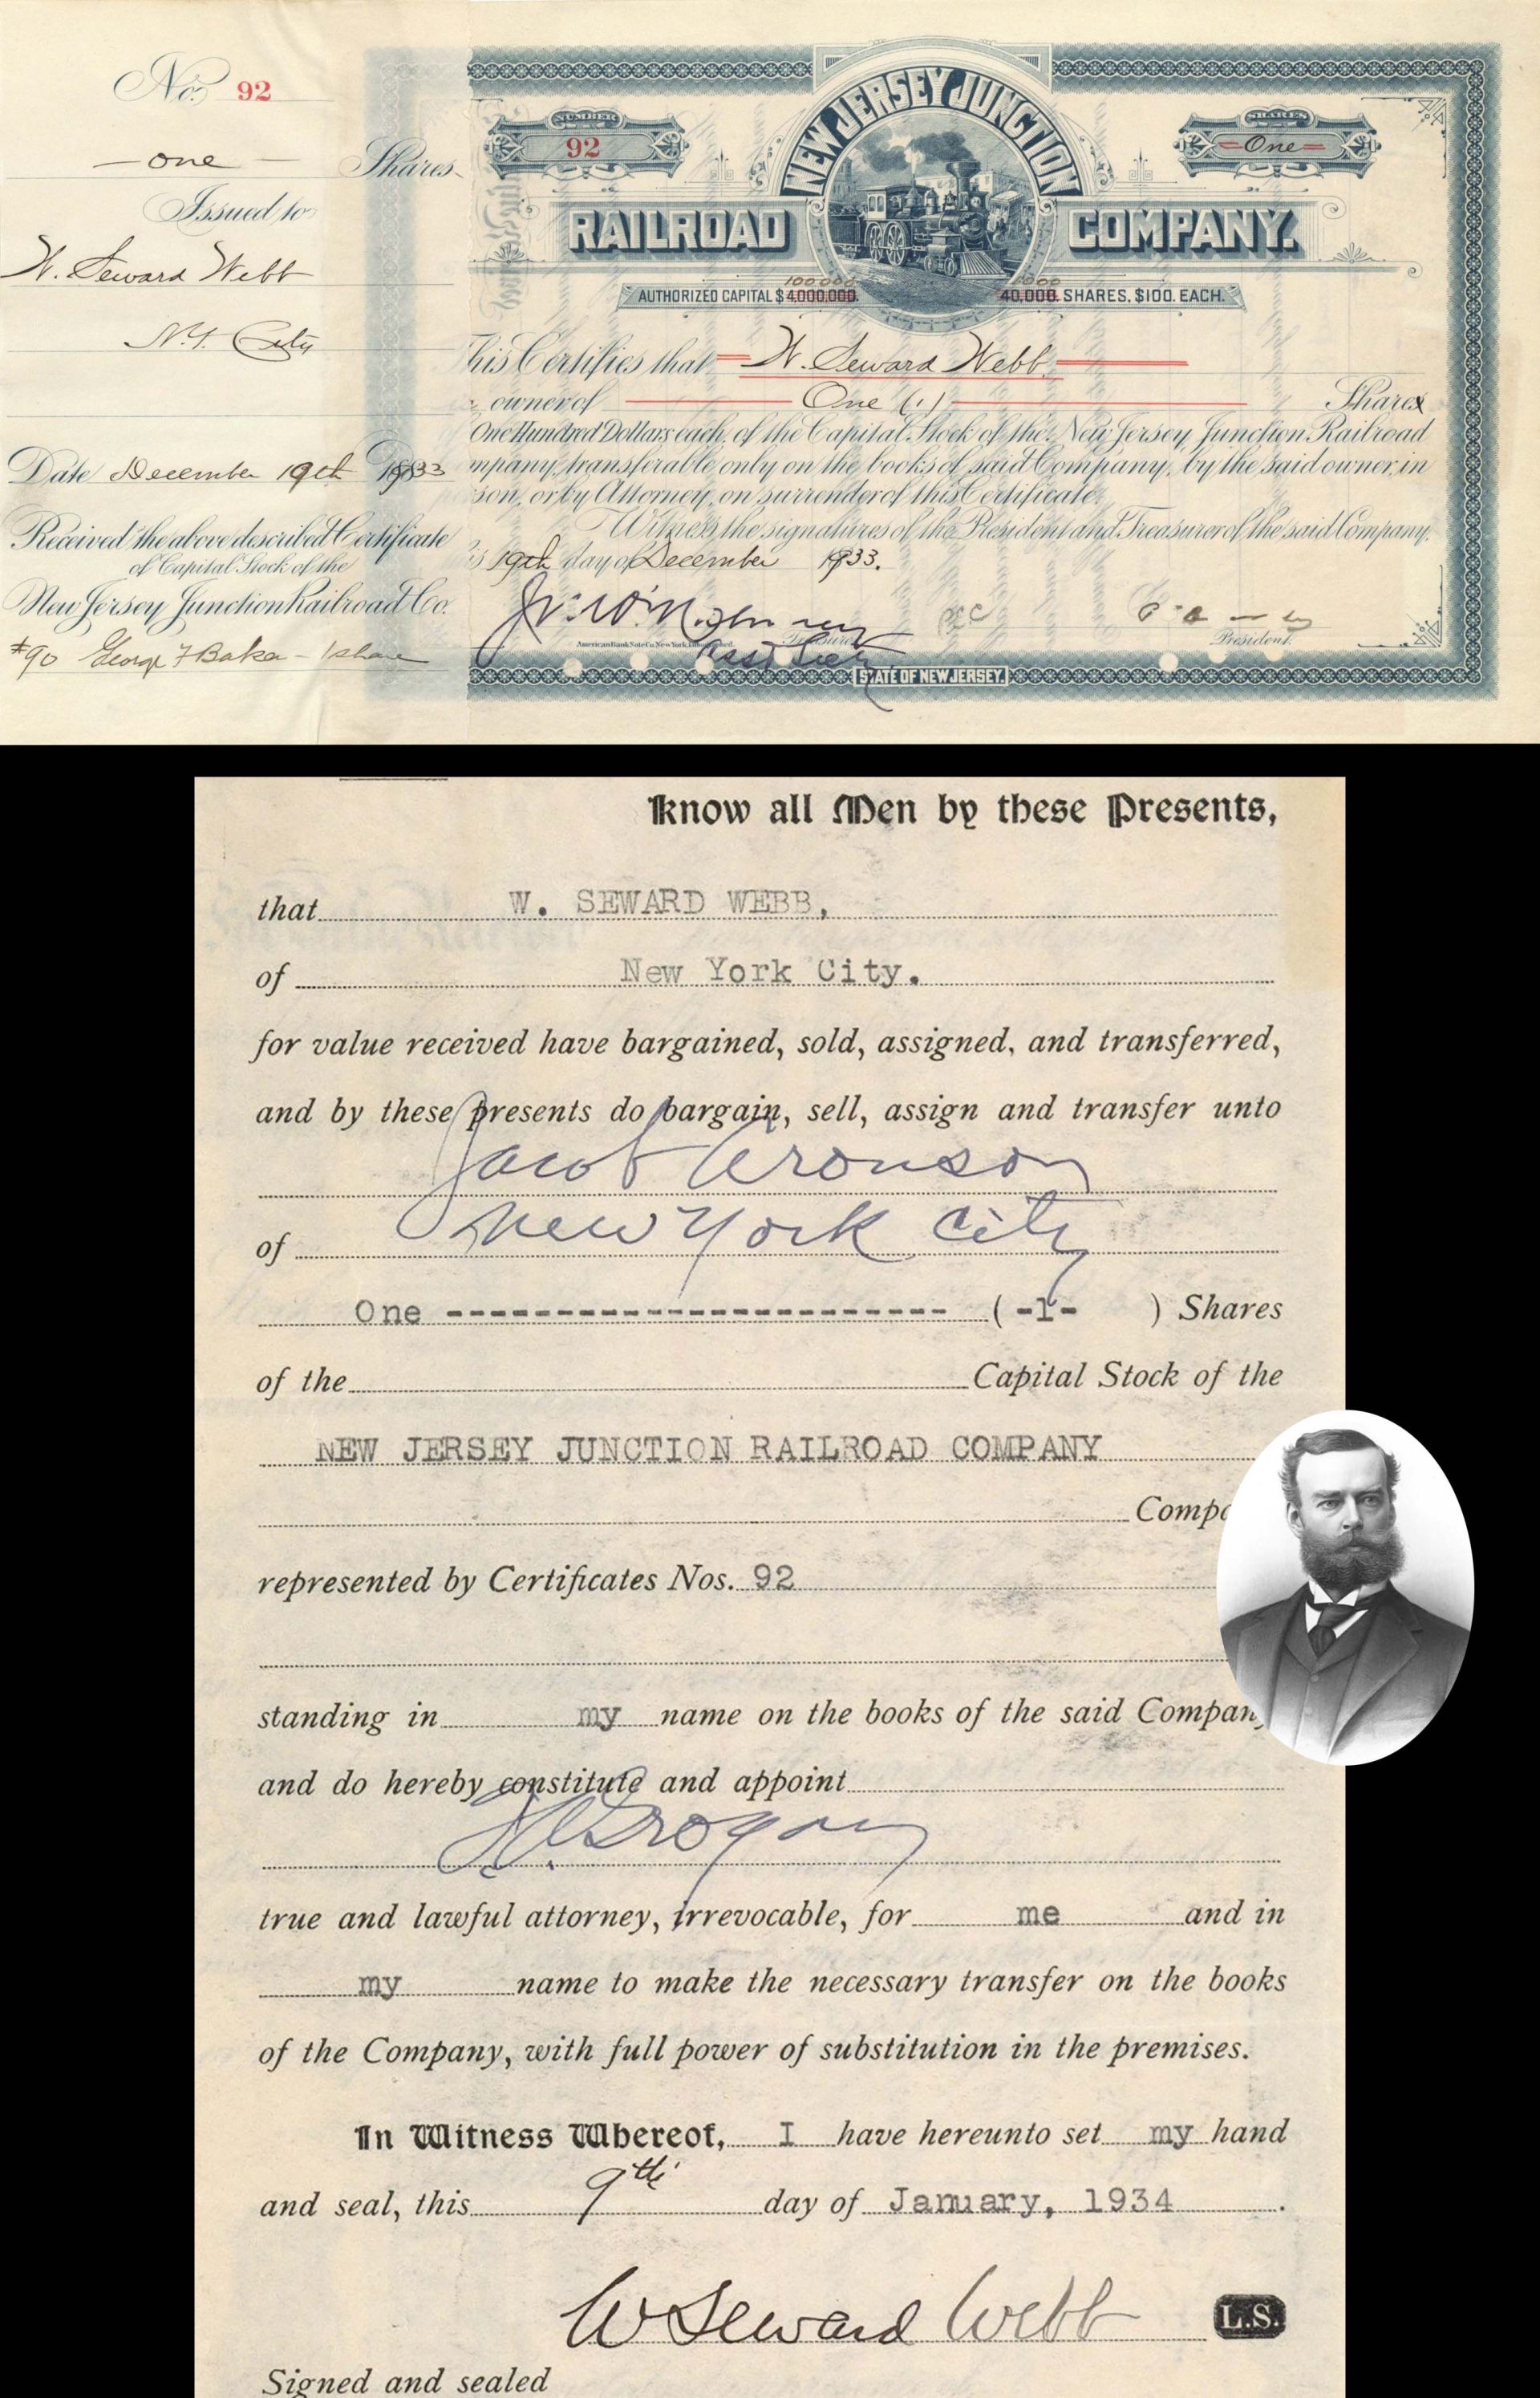 No. 92
— one — Shares
Issued to
W. Seward Webb
N.Y. City
Date December 19th 1933
Received the above described Certificate
of Capital Stock of the
New Jersey Junction Railroad Co.
#90 George F Baker - 1 share
NUMBER
92
SHARES
One
NEW JERSEY JUNCTION
RAILROAD COMPANY.
100,000 1000
AUTHORIZED CAPITAL $4,000,000. 40,000. SHARES, $100. EACH.
his Certifies that W. Seward Webb
owner of One (1) Shares
One Hundred Dollars each, of the Capital Stock of the New Jersey Junction Railroad
mpany, transferable only on the books of said Company, by the said owner, in
son, or by Attorney, on surrender of this Certificate.
Witness the signatures of the President and Treasurer of the said Company,
s 19th day of December 1933.
American Bank Note Co. New York. Treasurer President.
Asst Secty
STATE OF NEW JERSEY.
Know all Men by these Presents,
that W. SEWARD WEBB,
of New York City.
for value received have bargained, sold, assigned, and transferred,
and by these presents do bargain, sell, assign and transfer unto
Jacob Aronson
of New York City
One ------------------------- ( -1- ) Shares
of the Capital Stock of the
NEW JERSEY JUNCTION RAILROAD COMPANY
Compa
represented by Certificates Nos. 92
standing in my name on the books of the said Company
and do hereby constitute and appoint
Grogan
true and lawful attorney, irrevocable, for me and in
my name to make the necessary transfer on the books
of the Company, with full power of substitution in the premises.
In Witness Whereof, I have hereunto set my hand
and seal, this 9th day of January, 1934.
W Seward Webb L.S.
Signed and sealed